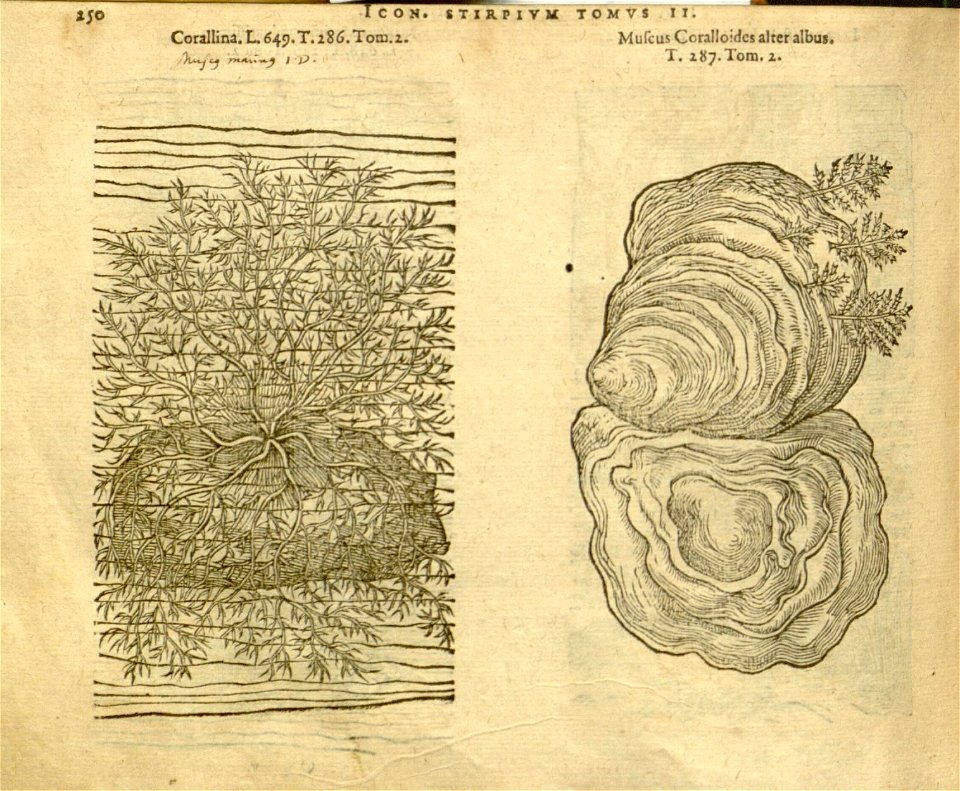 250
ICON. STIRPIVM TOMVS II.
Corallina. L. 649. T. 286. Tom. 2.
Muſcus Coralloides alter albus.
T. 287. Tom. 2.